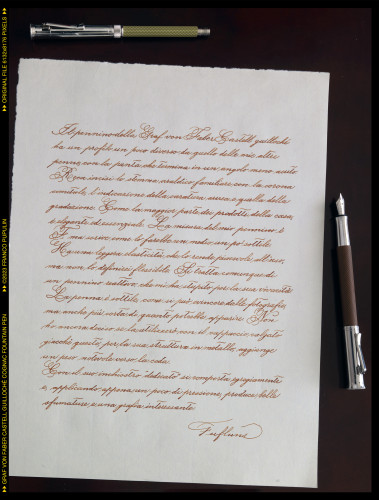 Il pennino della Graf von Faber Castell guilloché
ha un profilo un poco diverso da quello delle mie altre
penne, con la punta che termina in un angolo meno acuto.
Reca inciso lo stemma araldico familiare con la corona
comitale, l'indicazione della caratura aurea e quella della
gradazione. Come la maggior parte dei prodotti della casa,
è elegante ed essenziale. La misura del mio pennino è
F, ma scrive come lo farebbe un medio un po' sottile.
Ha una leggera elasticità, che lo rende piacevole all'uso,
ma non lo definirei flessibile. Si tratta comunque di
un pennino reattivo, che mi ha stupito per la sua vivacità.
La penna è sottile, come si può evincere dalle fotografie,
ma anche più corta di quanto potrebbe apparire. Non
ho ancora deciso se la utilizzerò con il cappuccio calzato
giacché questo, per la sua struttura in metallo, aggiunge
un peso notevole verso la coda.
Con il suo inchiostro dedicato si comporta egregiamente
e, applicando appena un poco di pressione, produce belle
sfumature e una grafia interessante.
▸▸ ORIGINAL FILE 6132x8176 PIXELS ▸▸
▸▸ ©2023 FRANCO PUPULIN
▸▸ GRAF VON FABER CASTELL GUILLOCHÉ COGNAC FOUNTAIN PEN